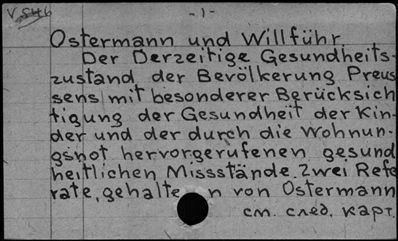 V 546
-1-
Ostermann und Willführ
Der Derzeitige Gesundheits-
zustand der Bevölkerung Preus
sens mit besonderer Berücksich
tigung der Gesundheit der Kin-
der und der durch die Wohnun-
gsnot hervorgerufenen gesund
heitlichen Missstände. Zwei Refe
rate, gehalte n von Ostermann
см. след. карт.